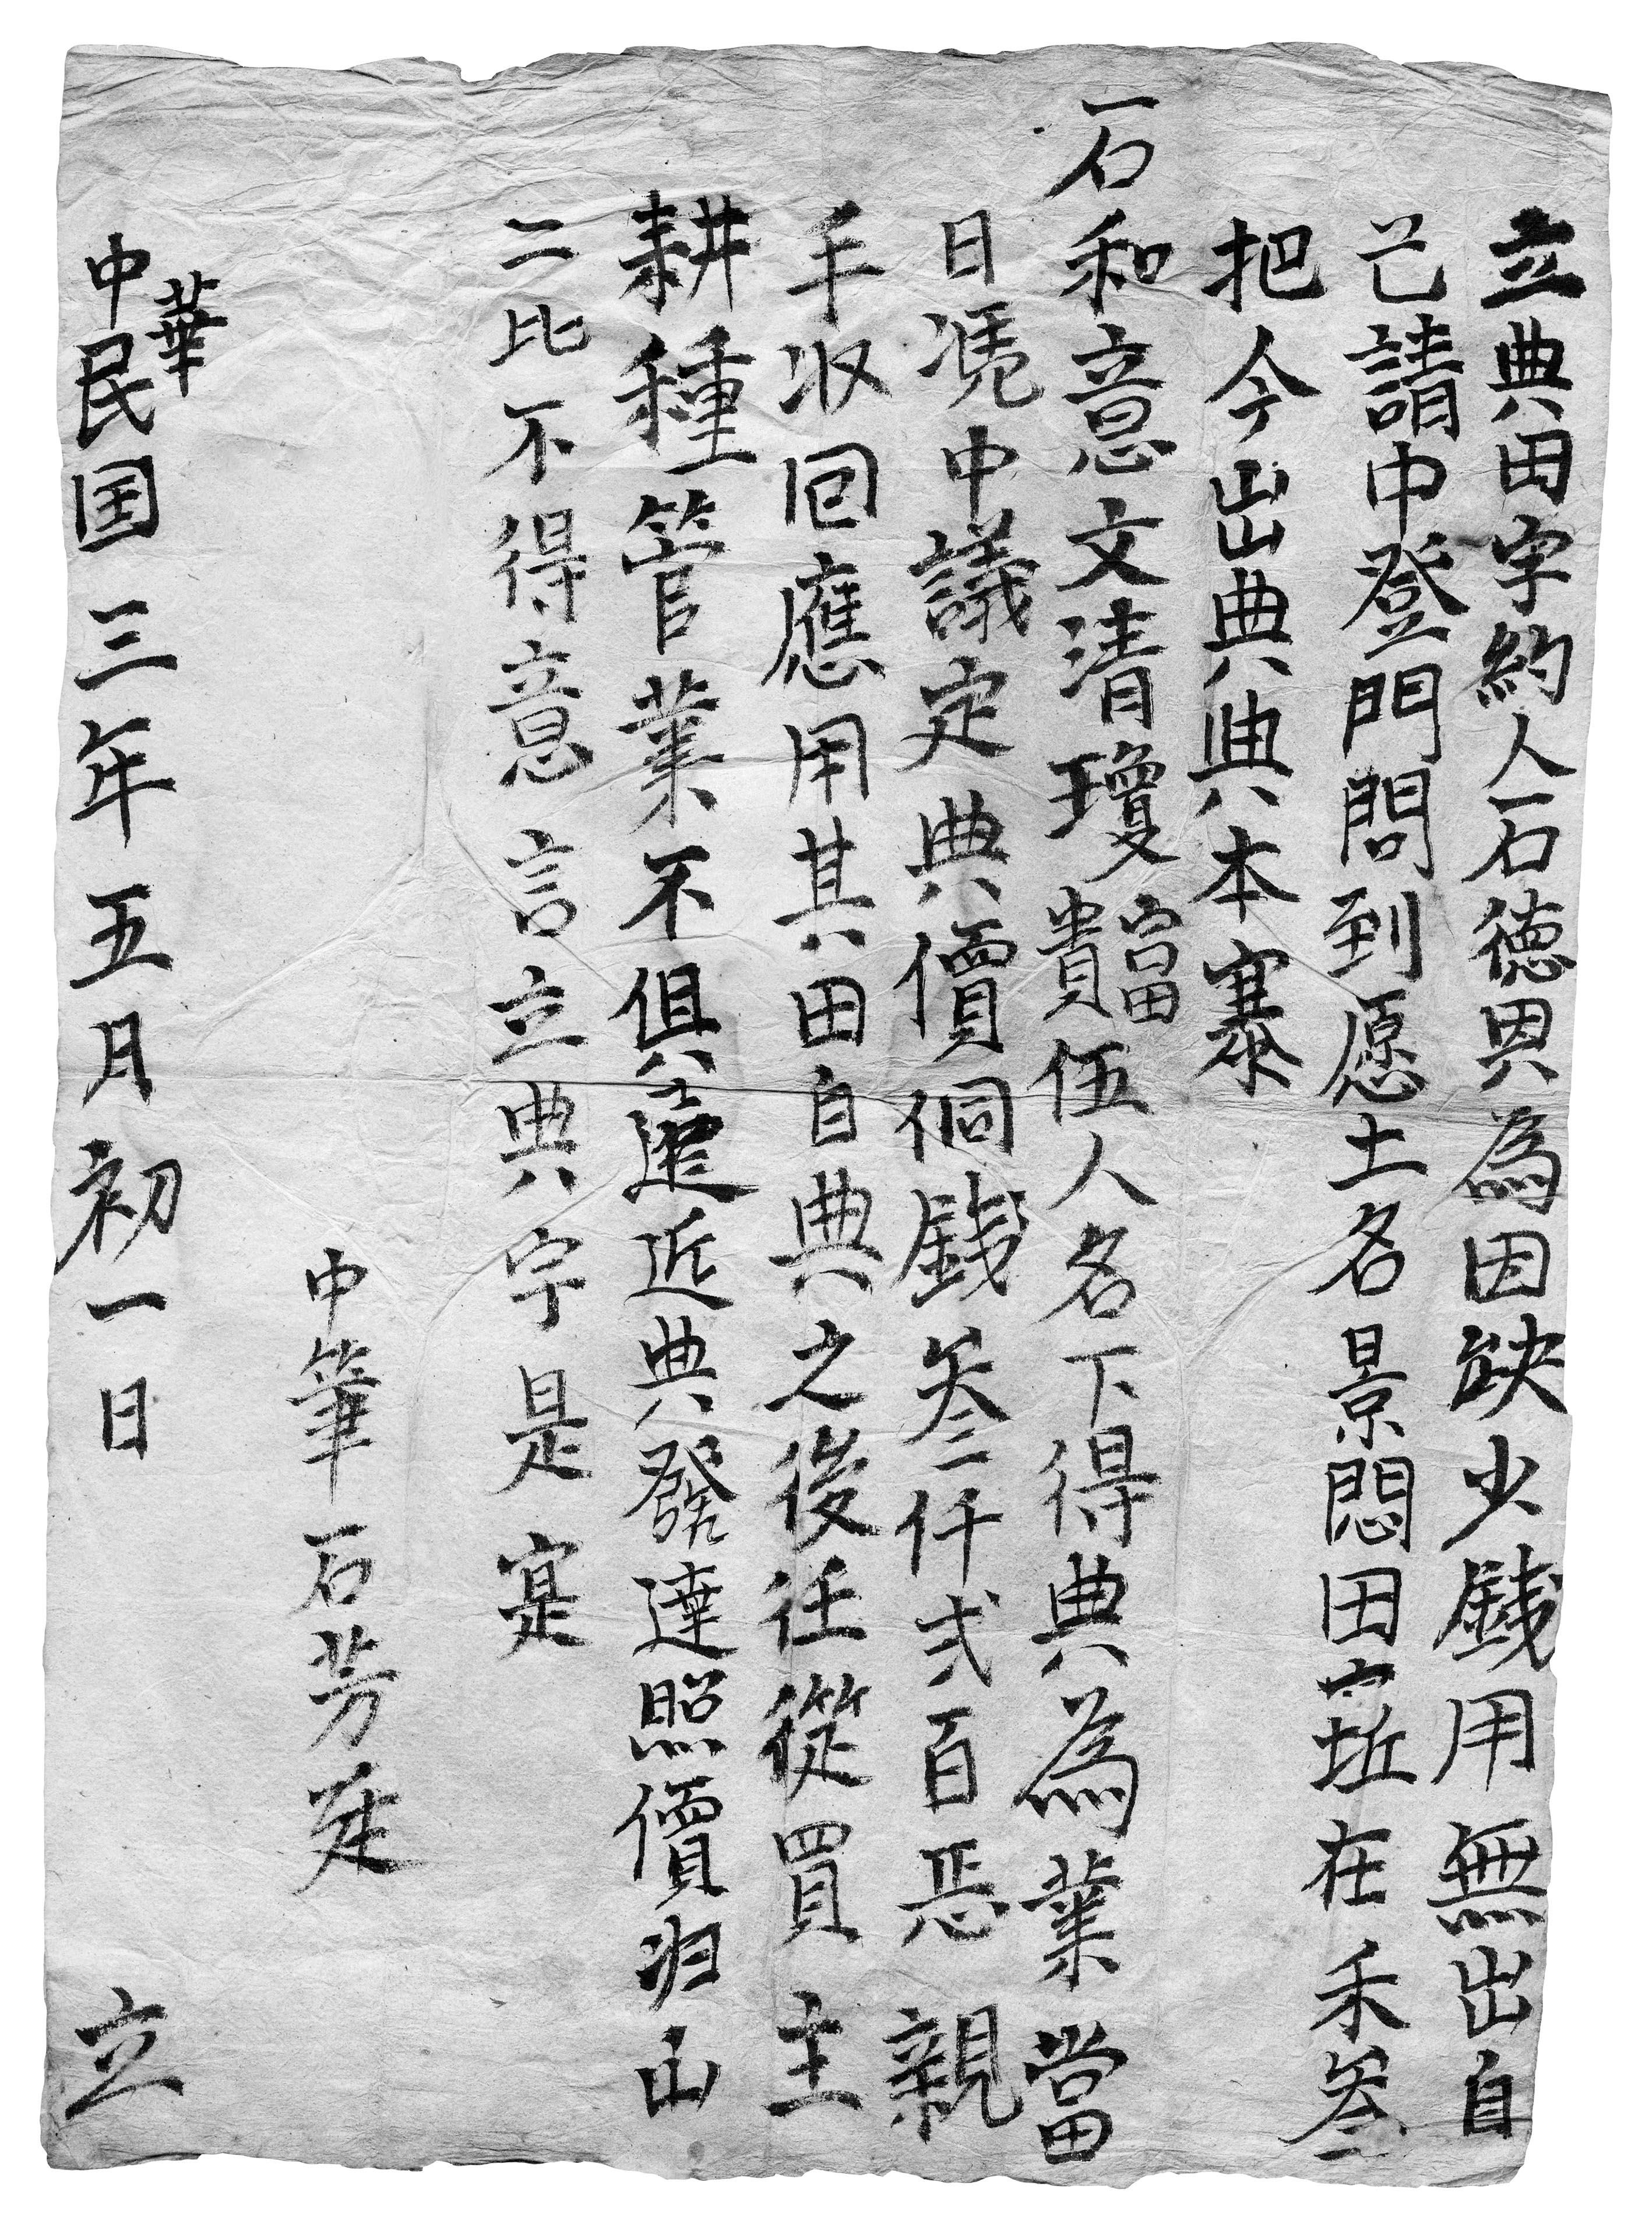 立典田字約人石德恩為因缺少錢用無出自
己請中登門問到愿土名景悶田一坵在禾叁
把今出典典本寨
石和意文清瓊富貴伍人名下得典為業當
日凴中議定典價侗錢叁仟式百恶親
手収回應用其田自典之後任從買主
耕種管業不俱遠近典發達照價归山
二比不得意言立典字是寔
中筆石芳廷
中華民国三年五月初一日立